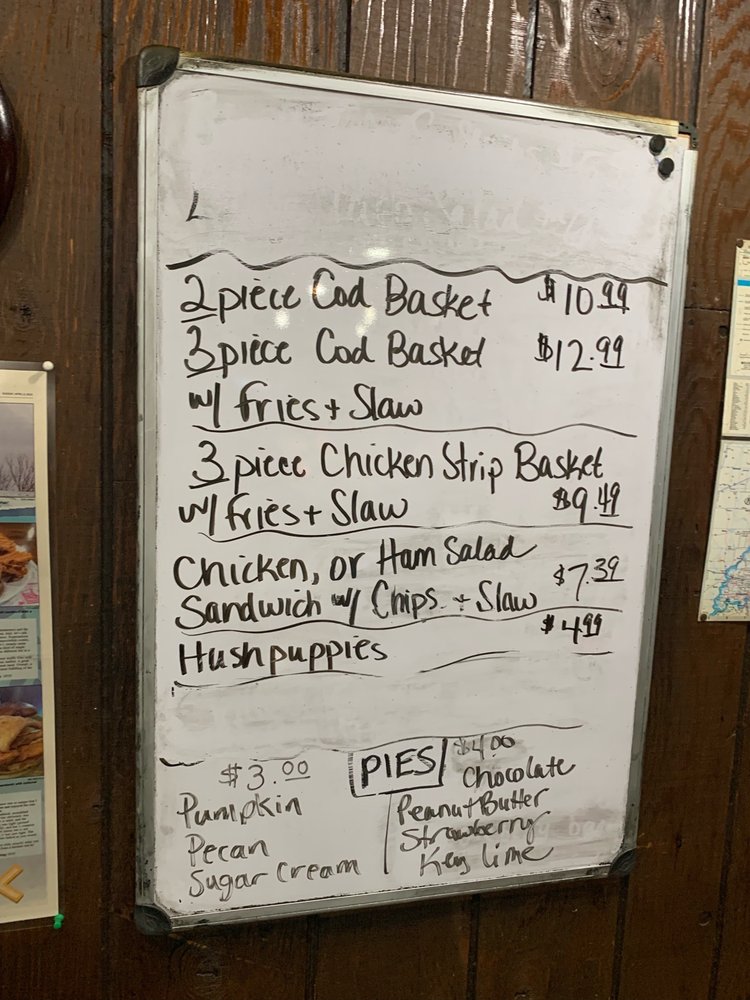 L
2 piece Cod Basket $10.99
3 piece Cod Basket $12.99
w/ fries + Slaw
3 piece Chicken Strip Basket
w/ fries + Slaw $9.49
Chicken, or Ham Salad
Sandwich w/ Chips + Slaw $7.39
Hushpuppies $4.99
PIES
$3.00
Pumpkin
Pecan
Sugar Cream
$4.00
Chocolate
Peanut Butter
Strawberry
Key Lime